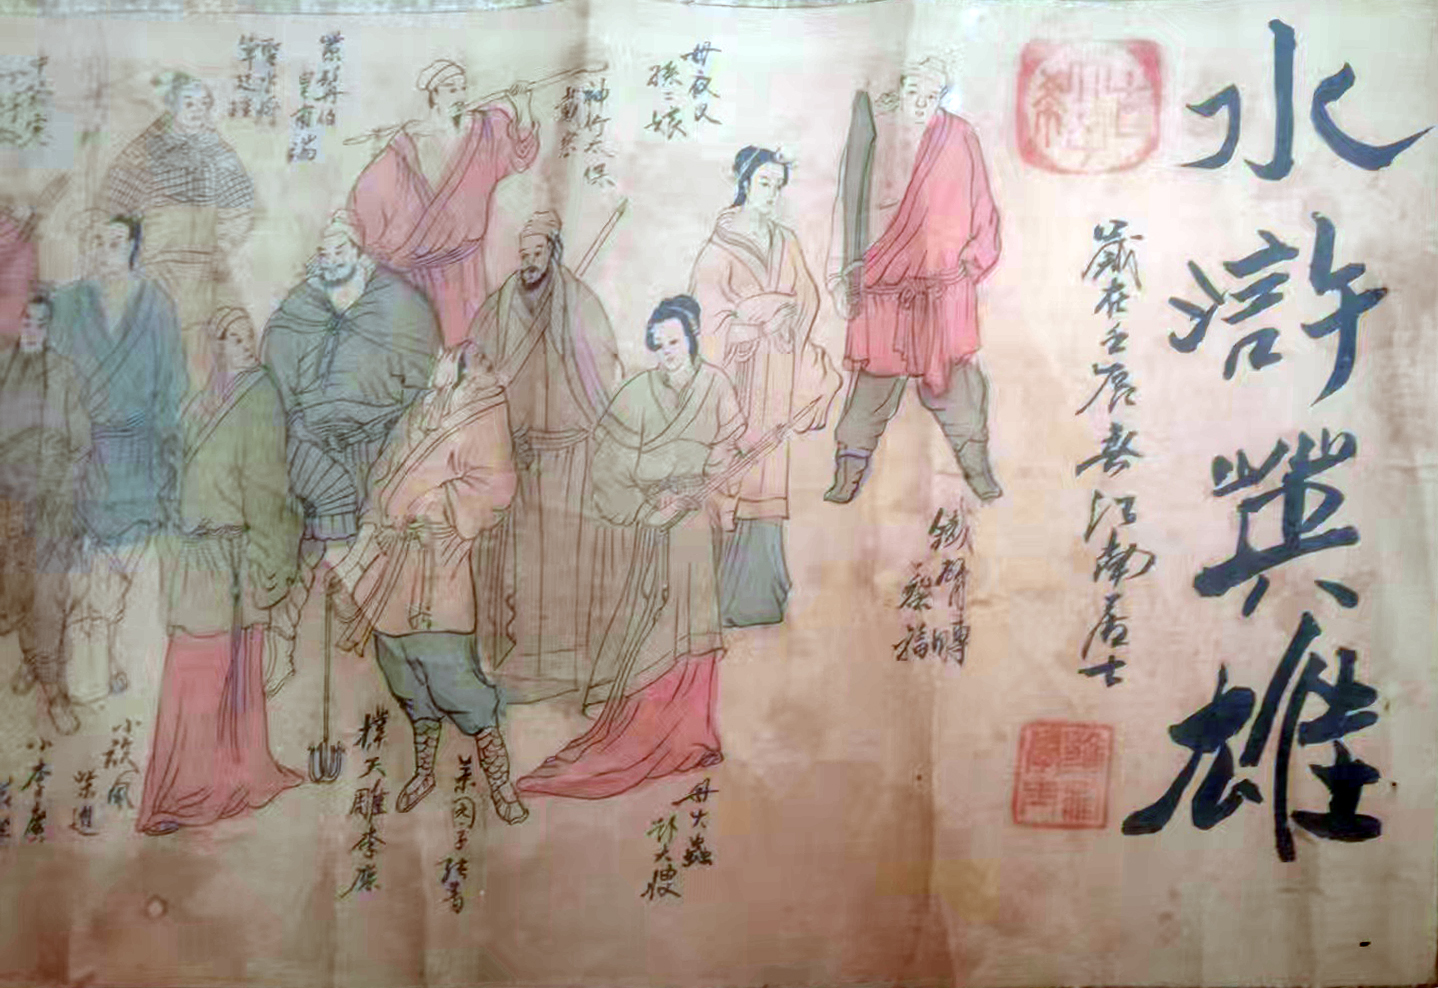 水滸英雄
歲在壬辰春江南居士
鐵臂膊
蔡福
母夜叉
孫二娘
母大蟲
神行太保
戴宗
菜園子張青
撲天雕李應
紫髯伯
皇甫端
聖水將
單廷珪
小旋風
柴進
小李廣